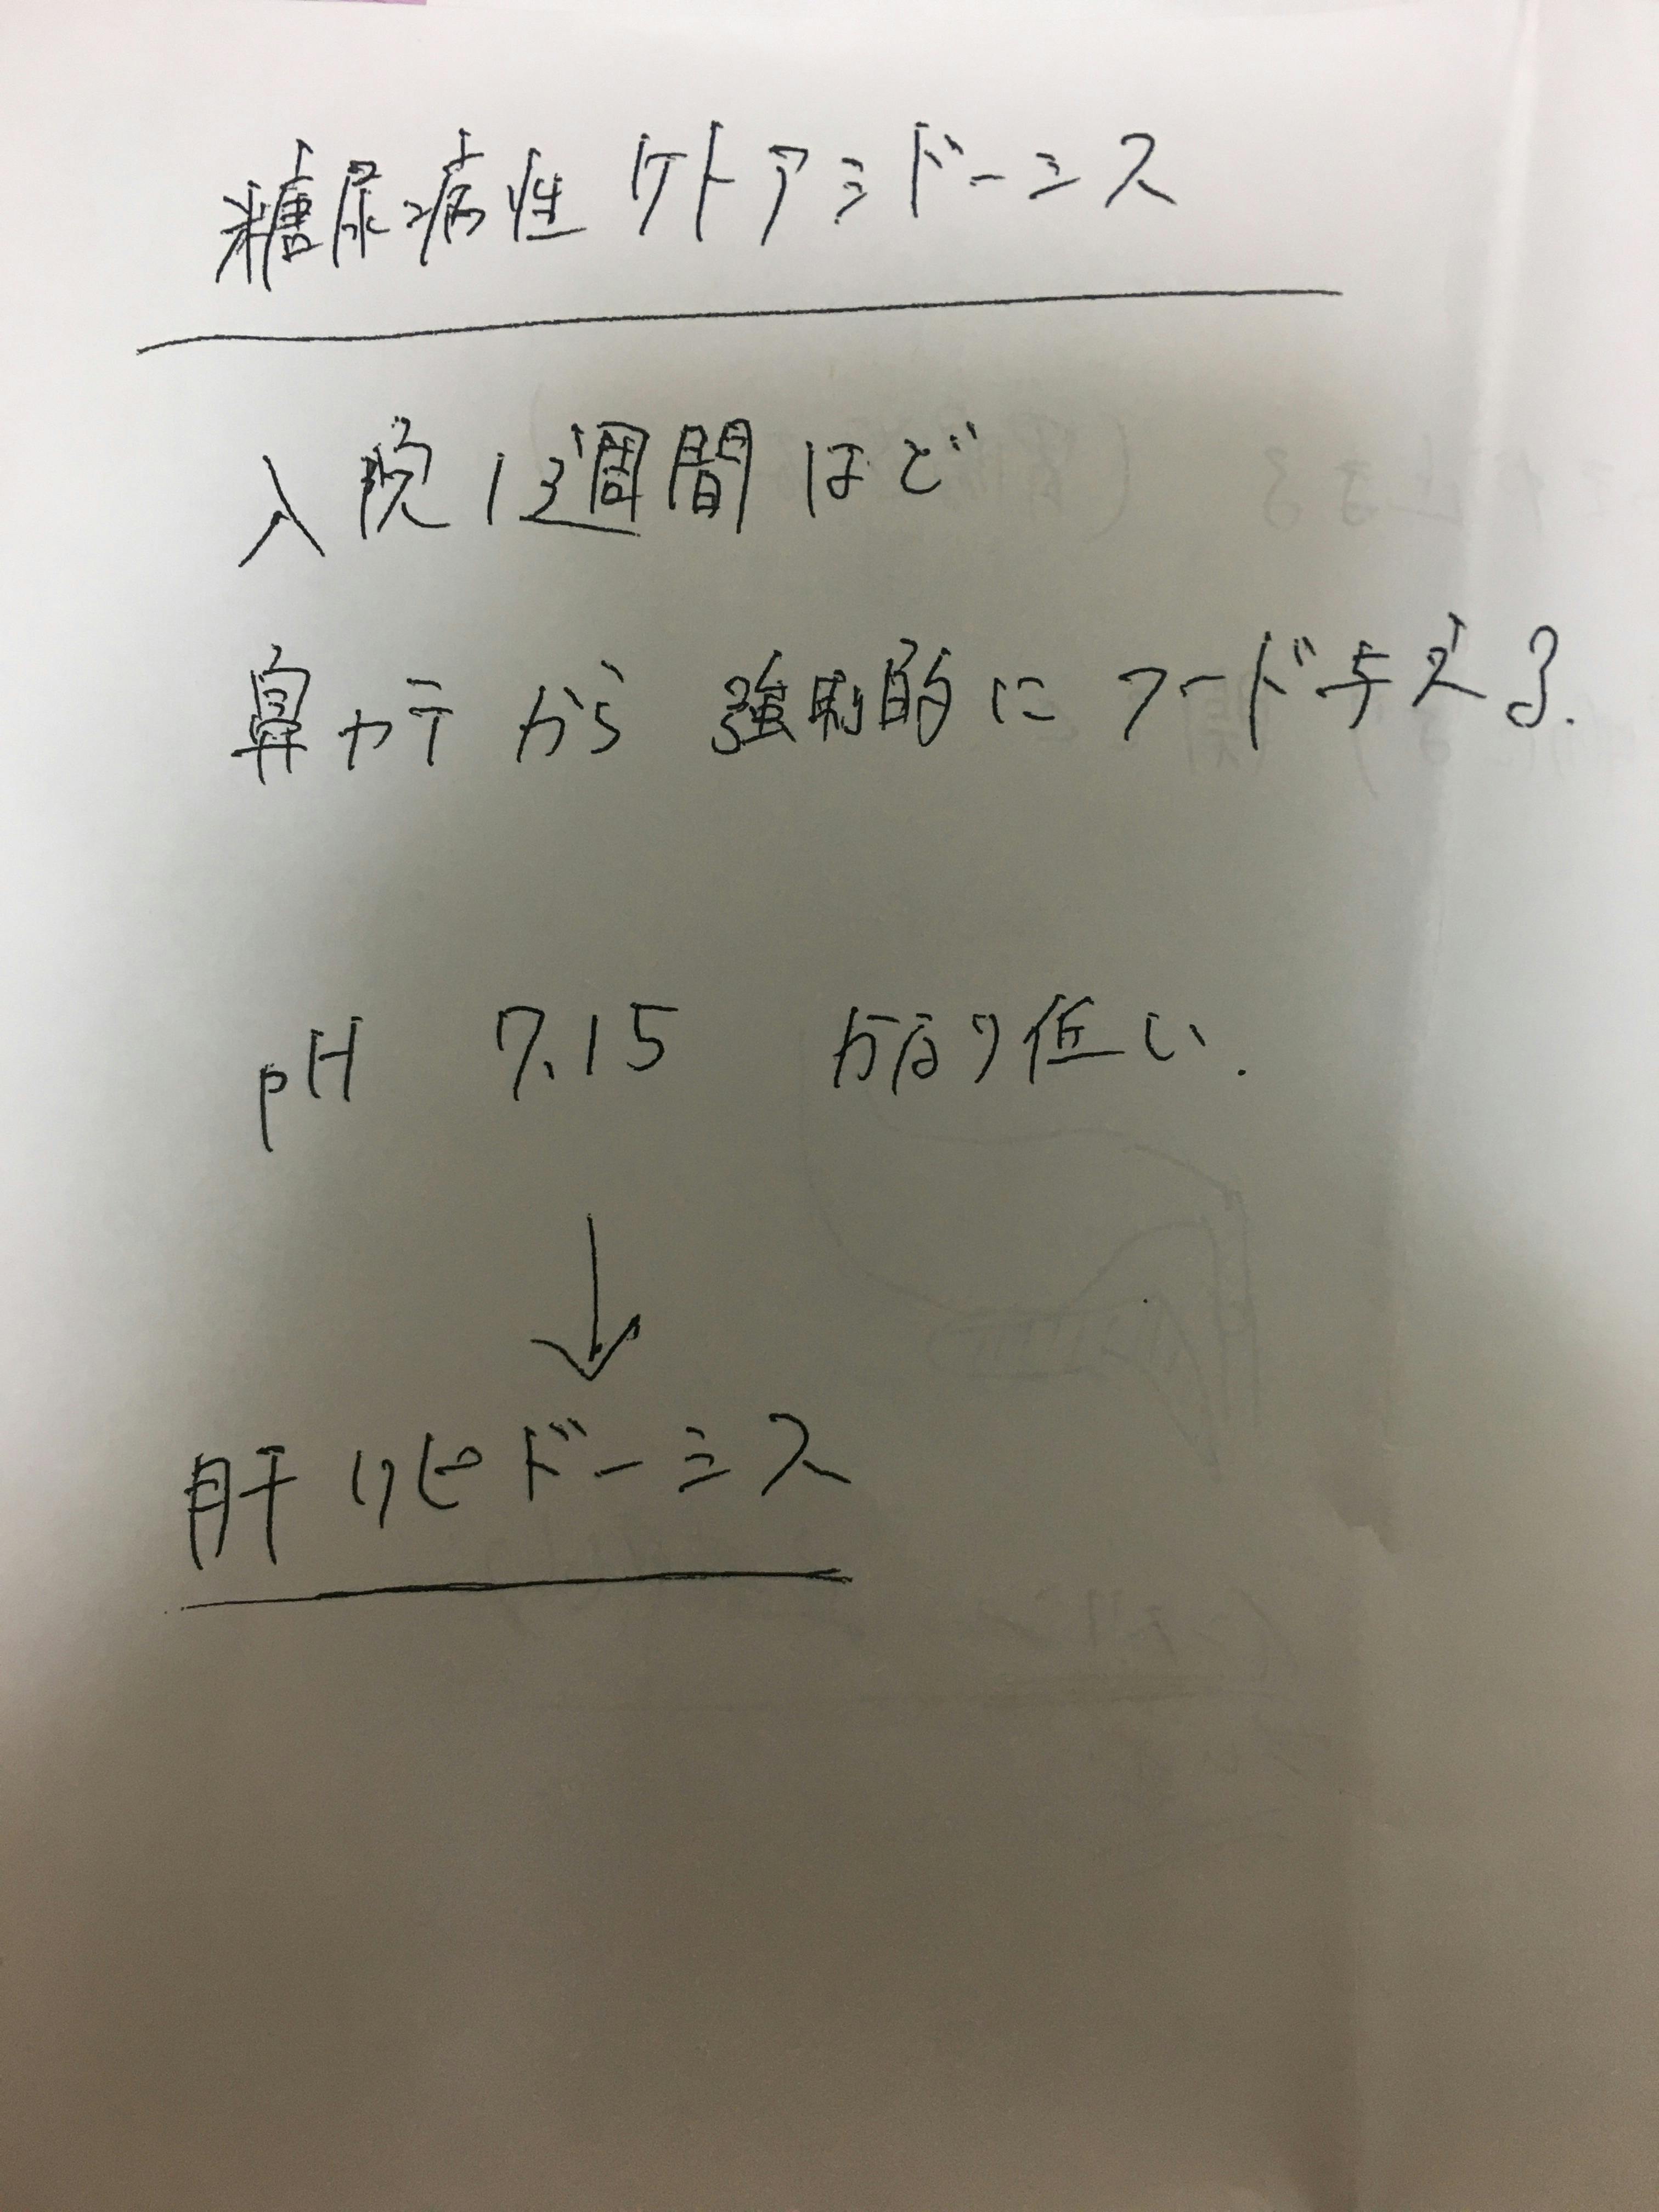 糖尿病性ケトアシドーシス
入院1週間ほど
鼻カテから強制的にフード与える.
pH 7.15 かなり低い.
↓
肝リピドーシス